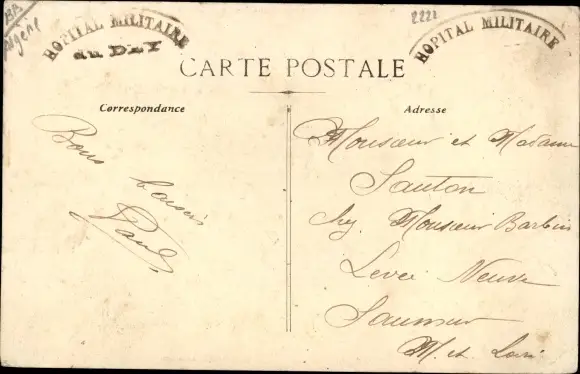 BB
Algérie
HOPITAL MILITAIRE
du DEY
2221
HOPITAL MILITAIRE
CARTE POSTALE
Correspondance
Bons
baisers
Paul
Adresse
Monsieur et Madame
Sauton
chez Monsieur Barbin
Levée Neuve
Saumur
M. et Loire